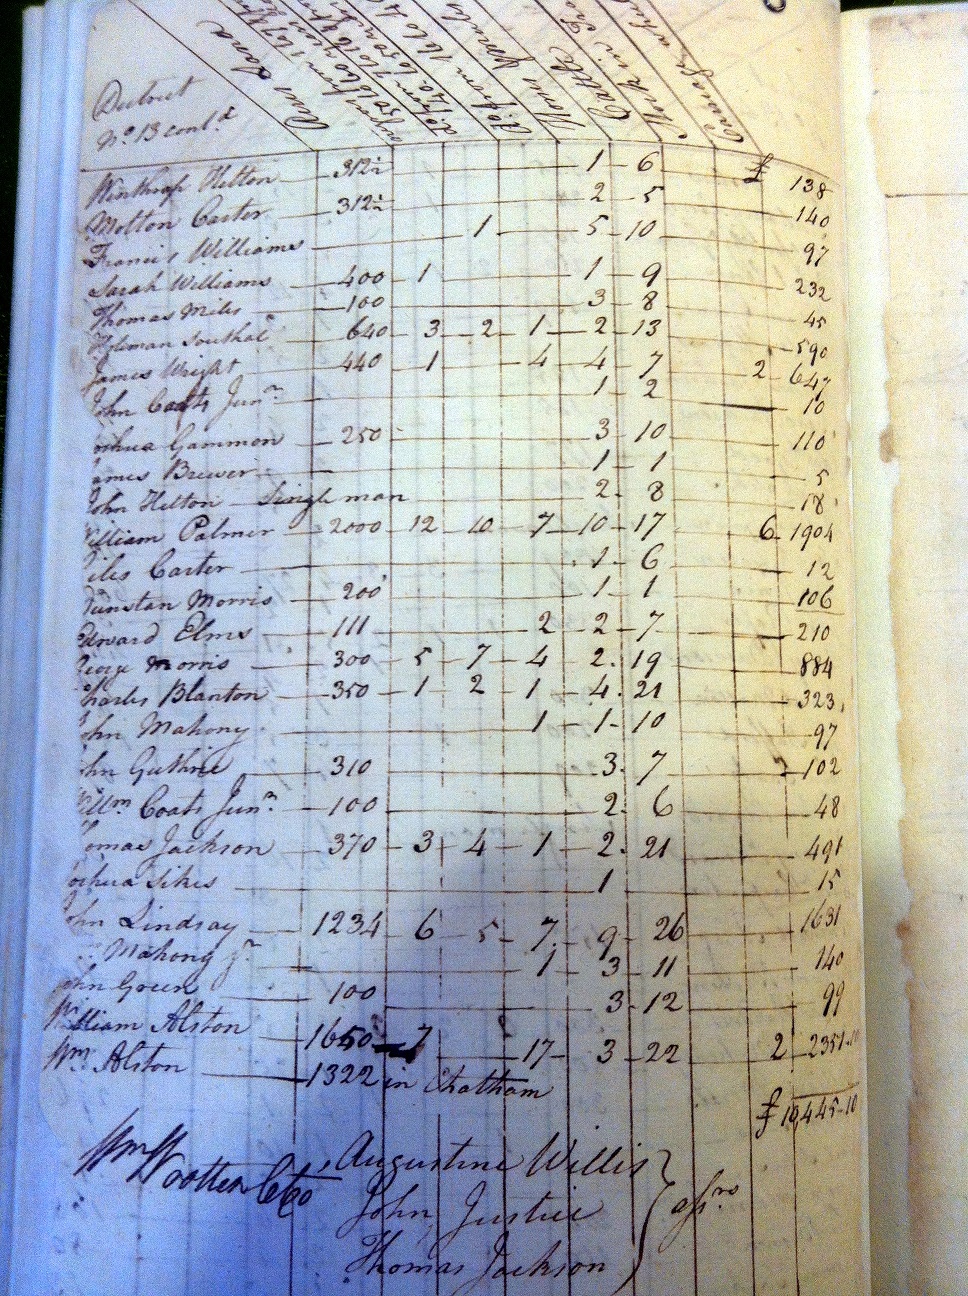 District
No. 13 contd
Acres Land
Horses & Mules
Cattle
Carriages
Winthrop Hilton 312½ 1 6 £ 138
Molton Carter 312½ 2 5 140
Francis Williams 1 5 10 97
Sarah Williams 400 1 1 9 232
Thomas Miles 100 3 8 45
Holeman Southal 640 3 2 1 2 13 590
James Wright 440 1 4 4 7 2 647
John Coats Junr 1 2 10
oshua Gammon 250 3 10 110
ames Brewer 1 1 5
John Hilton Single man 2 8 18
William Palmer 2000 12 10 7 10 17 6 1904
iles Carter 1 6 12
Dunstan Morris 200 1 1 106
Edward Elms 111 2 2 7 210
George Morris 300 5 7 4 2 19 884
Charles Blanton 350 1 2 1 4 21 323
John Mahony 1 1 10 97
John Guthrie 310 3 7 102
Willm Coats Junr 100 2 6 48
Thomas Jackson 370 3 4 1 2 21 491
Joshua Sikes 1 15
John Lindsay 1234 6 5 7 9 26 1631
Mahony Jr 1 3 11 140
John Green 100 3 12 99
William Alston 1650 7 17 3 22 2 2351-10
Wm Alston 1322 in Chatham
£ 10,445-10
Wm Wootten
Augustine Willis
John Justice
Thomas Jackson